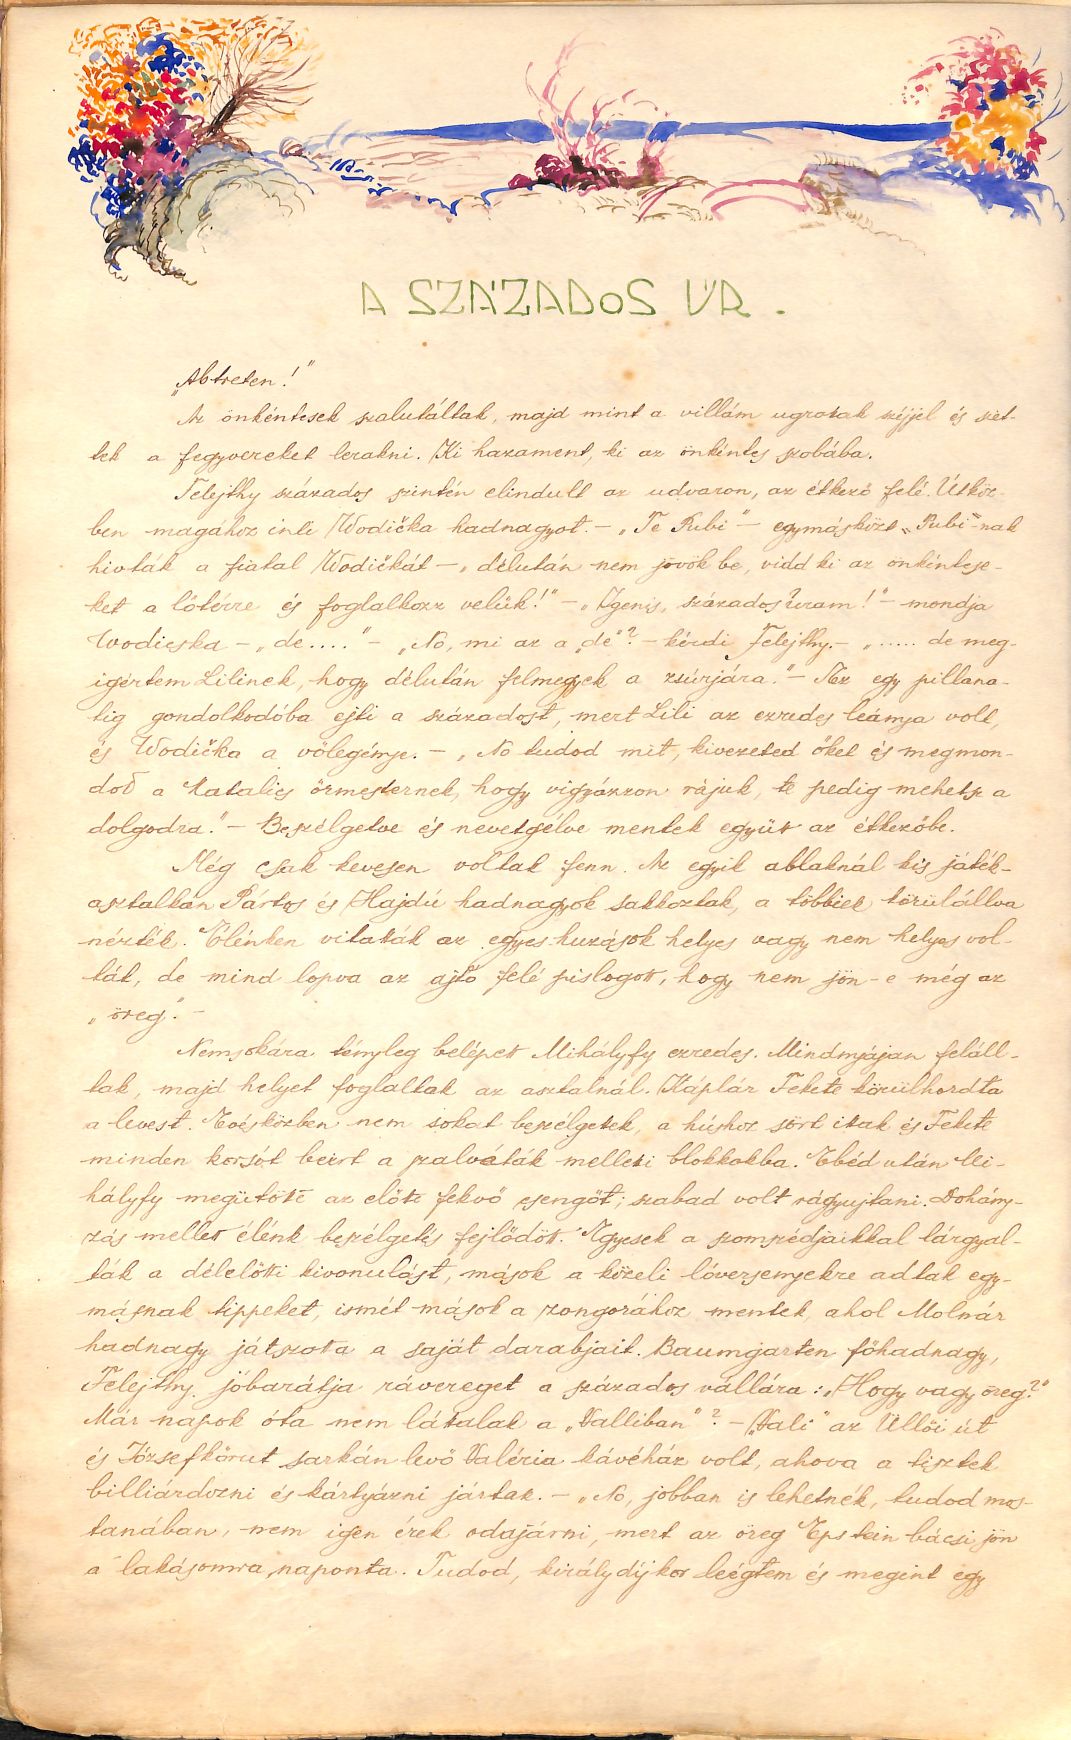 A SZÁZADOS ÚR.
„Abtreten!"
Az önkéntesek szalutáltak, majd mint a villám ugrotak széjjel és siet-
tek a fegyvereket lerakni. Ki hazament, ki az önkéntes szobába.
Telejthy százados szintén elindult az udvaron, az étkező felé. Útköz-
ben magához inti Wodička hadnagyot. – „Te Pubi" – egymásközt „Pubi"-nak
hivták a fiatal Wodičkát – „délután nem jövök be, vidd ki az önkéntese-
ket a lőtérre és foglalkozz velük!" – „Igenis, százados uram!" – mondja
Wodicska – „de...." – „No, mi az a „de"? – kérdi Telejthy. – „..... de meg-
igértem Lilinek, hogy délután felmegyek a zsúrjára." – Ez egy pillana-
tig gondolkodóba ejti a századost, mert Lili az ezredes leánya volt,
és Wodička a vőlegénye. – „No tudod mit, kivezeted őket és megmon-
dod a Katalics örmesternek, hogy vigyázzon rájuk, te pedig mehetsz a
dolgodra." – Beszélgetve és nevetgélve mentek együt az étkezőbe.
Még csak kevesen voltak fenn. Az egyik ablaknál kis játék-
asztalkán Pártos és Hajdú hadnagyok sakkoztak, a többiek körülállva
nézték. Élénken vitaták az egyes huzások helyes vagy nem helyes vol-
tát, de mind lopva az ajtó felé pislogott, hogy nem jön-e még az
„öreg". –
Nemsokára tényleg belépett Mihályfy ezredes. Mindnyájan feláll-
tak, majd helyet foglaltak az asztalnál. Káplár Fekete körülhordta
a levest. Evésközben nem sokat beszélgetek, a húshoz sört itak és Fekete
minden korsót beirt a szalváták melleti blokkokba. Ebéd után Mi-
hályfy megütötte az előte fekvő csengőt; szabad volt rágyujtani. Dohány-
zás mellet élénk beszélgetés fejlődött. Egyesek a szomszédjaikkal tárgyal-
ták a délelötti kivonulást, mások a közeli lóversenyekre adtak egy-
másnak tippeket, ismét mások a zongorához mentek, ahol Molnár
hadnagy játszotta a saját darabjait. Baumgarten főhadnagy,
Telejthy jóbarátja rávereget a százados vállára: „Hogy vagy öreg?"
Már napok óta nem látalak a „Valliban"? – „Vali" az Üllői út
és Józsefkörut sarkán levő Valéria kávéház volt, ahova a tisztek
billiárdozni és kártyázni jártak. – „No, jobban is lehetnék, tudod mos-
tanában, nem igen érek odajárni, mert az öreg Epstein bácsi jön
a lakásomra, naponta. Tudod, királydijkor leégtem és megint egy